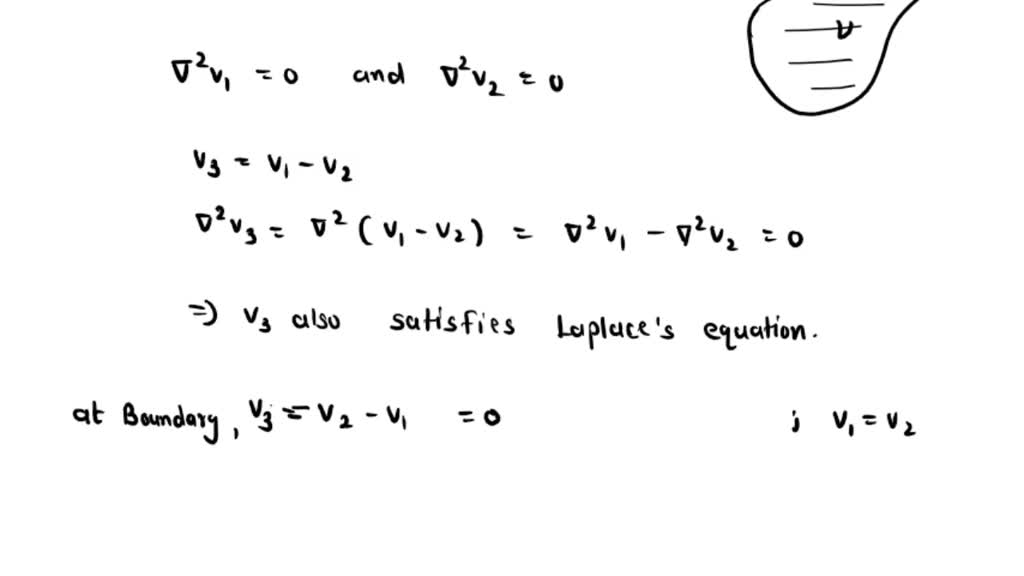 V
∇²V₁ = 0 and ∇²V₂ = 0
V₃ = V₁ - V₂
∇²V₃ = ∇² (V₁ - V₂) = ∇²V₁ - ∇²V₂ = 0
=) V₃ also satisfies Laplace's equation.
at Boundary, V₃ = V₂ - V₁ = 0 ; V₁ = V₂